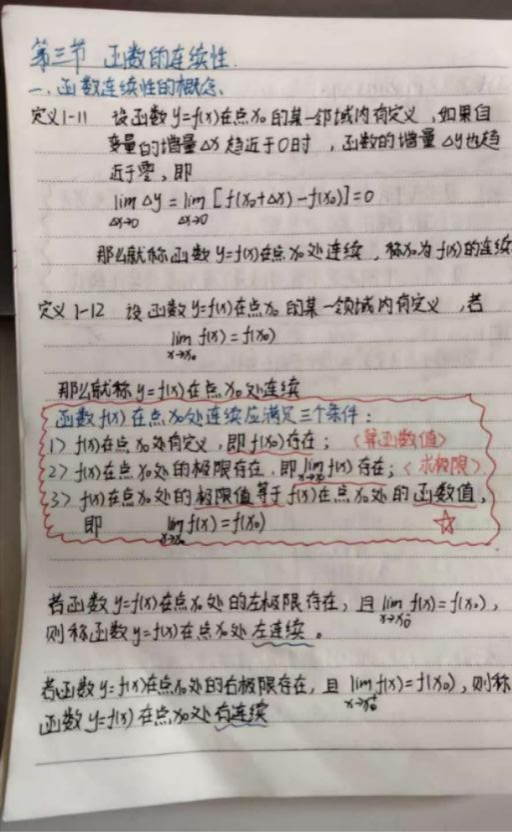 第三节 函数的连续性.
一、函数连续性的概念.
定义1-11 设函数y=f(x)在点x₀的某一邻域内有定义,如果自
变量的增量Δx趋近于0时,函数的增量Δy也趋
近于零,即
lim Δy = lim [f(x₀+Δx)-f(x₀)]=0
Δx→0 Δx→0
那么就称函数y=f(x)在点x₀处连续,称x₀为f(x)的连续
定义1-12 设函数y=f(x)在点x₀的某一领域内有定义,若
lim f(x)=f(x₀)
x→x₀
那么就称y=f(x)在点x₀处连续
函数f(x)在点x₀处连续应满足三个条件:
1> f(x)在点x₀处有定义,即f(x₀)存在;<算函数值>
2> f(x)在点x₀处的极限存在,即lim f(x)存在;<求极限>
x→x₀
3> f(x)在点x₀处的极限值等于f(x)在点x₀处的函数值,
即 lim f(x)=f(x₀) ☆
x→x₀
若函数y=f(x)在点x₀处的左极限存在,且lim f(x)=f(x₀),
x→x₀⁻
则称函数y=f(x)在点x₀处左连续。
若函数y=f(x)在点x₀处的右极限存在,且lim f(x)=f(x₀),则称
x→x₀⁺
函数y=f(x)在点x₀处右连续